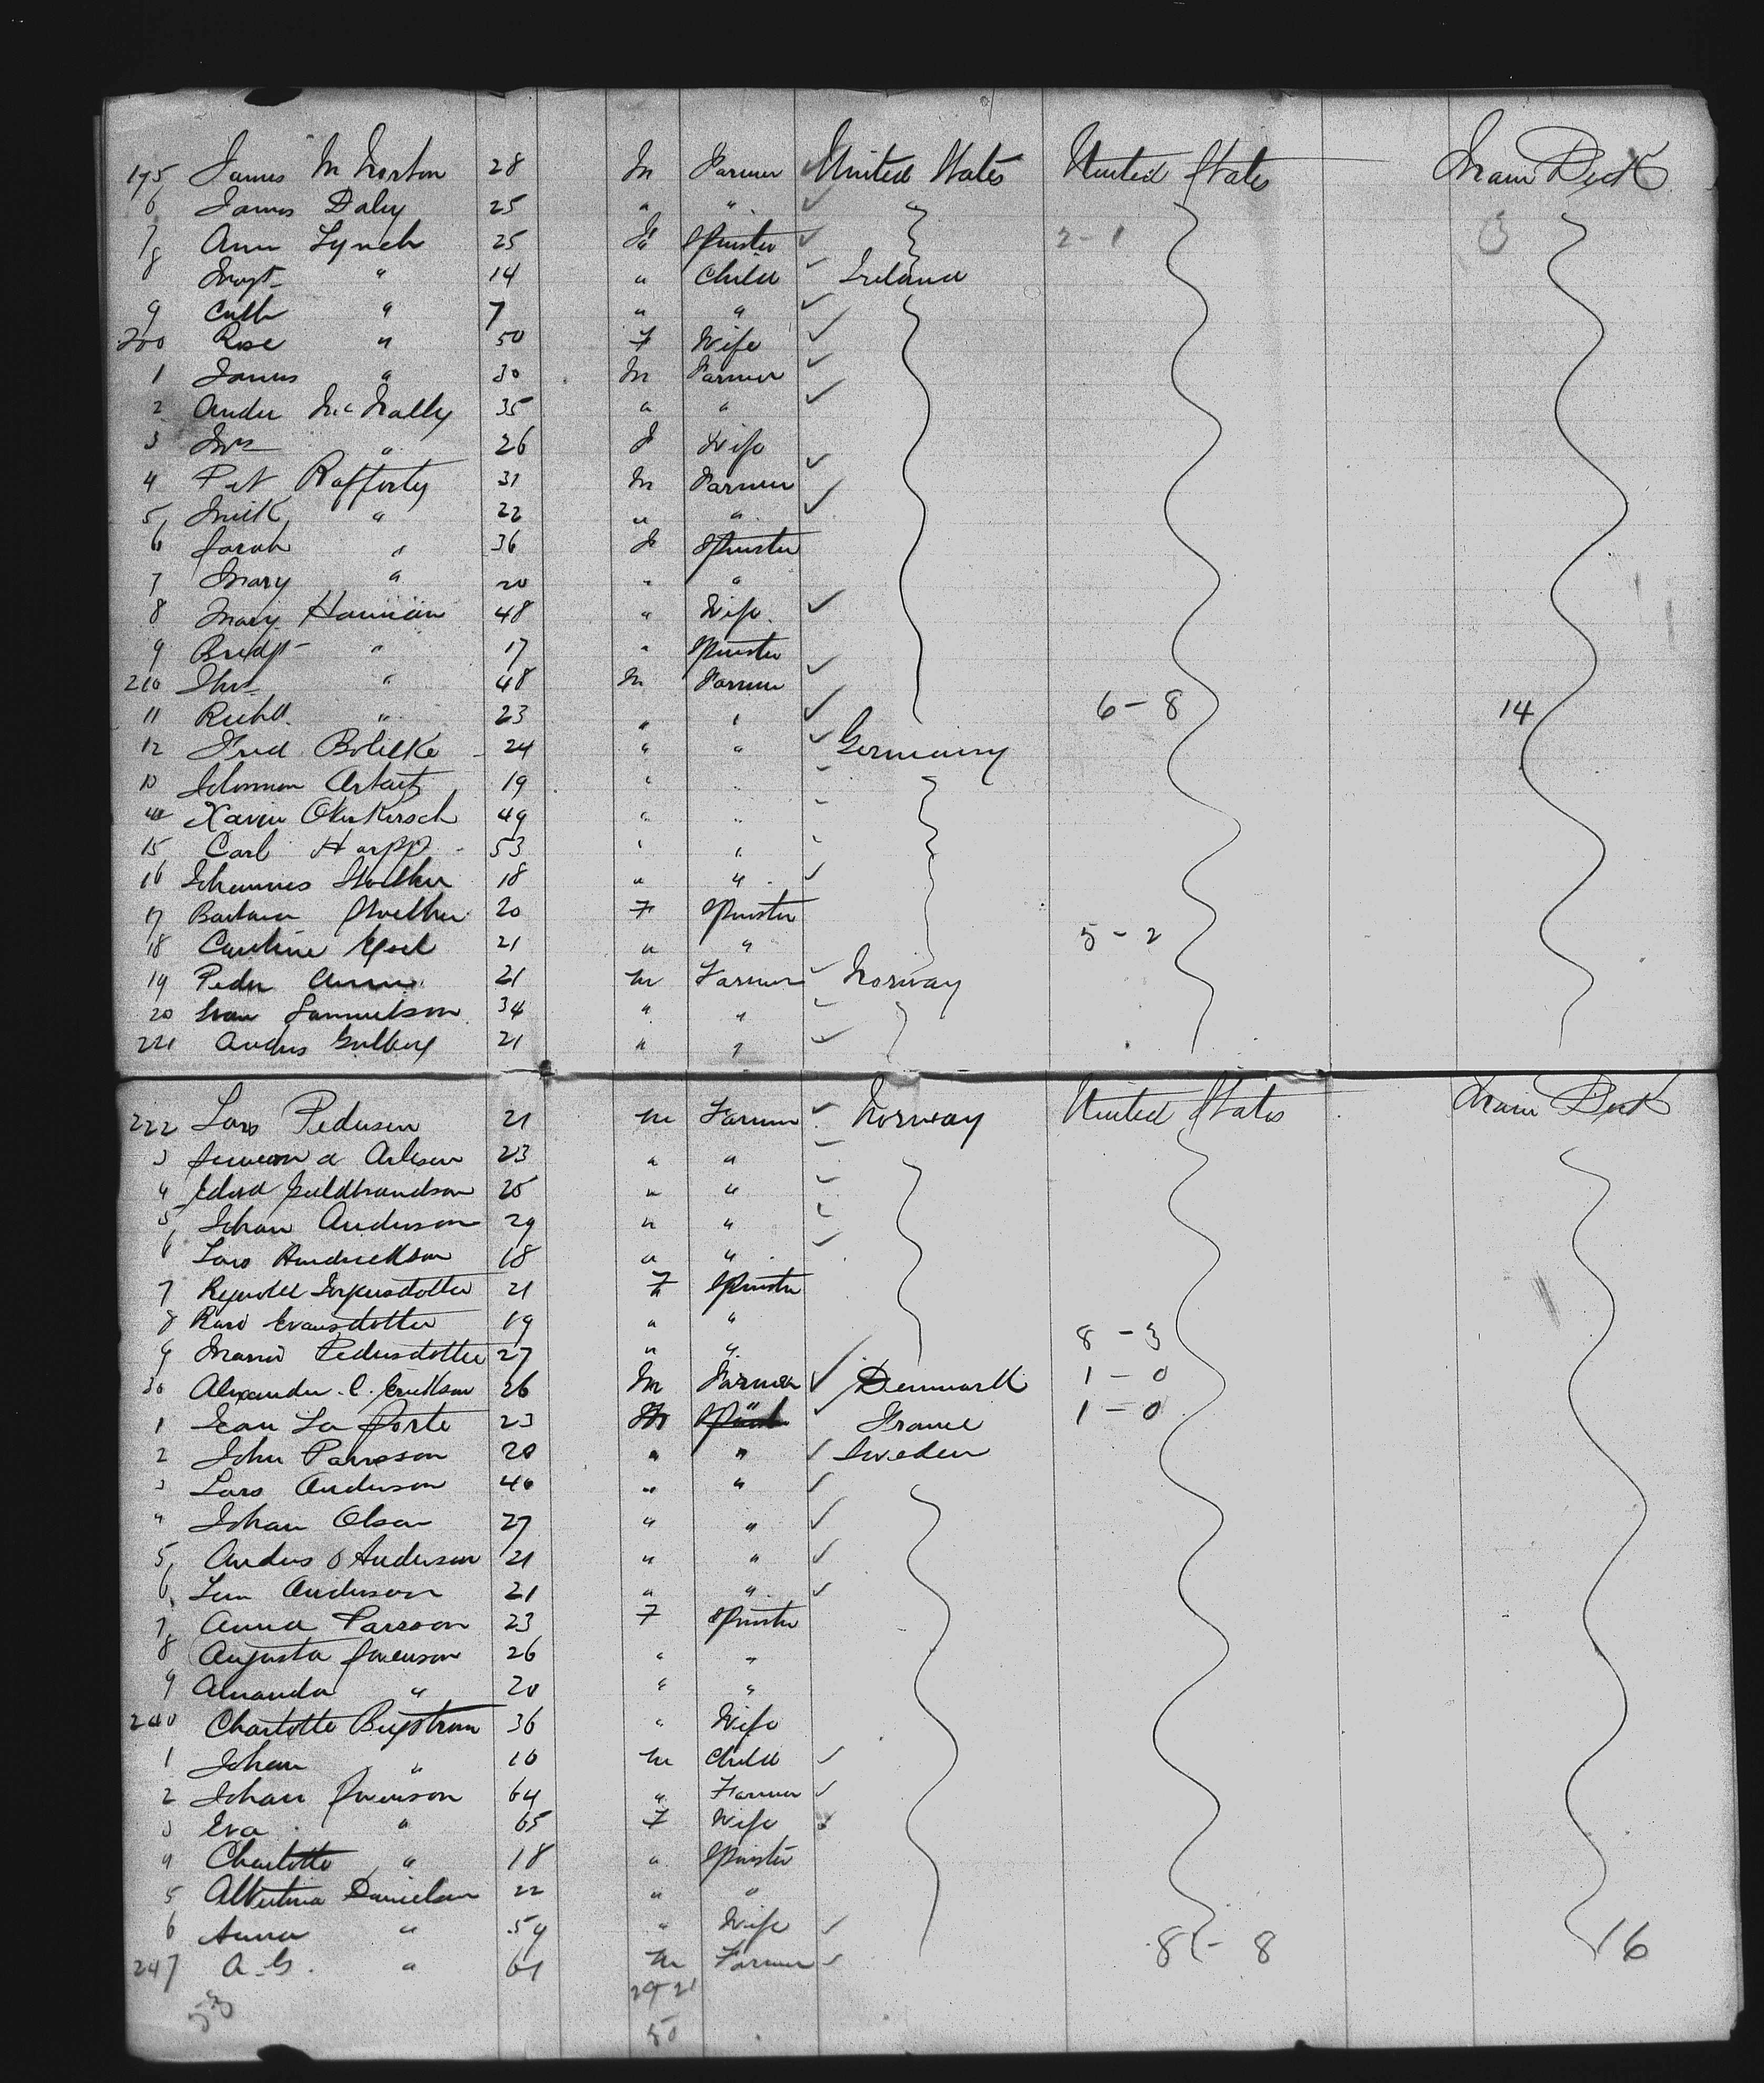 195 James M Norton 28 M Farmer United States United States Main Deck
6 James Daly 25 " " ✓
7 Ann Lynch 25 F Spinster ✓ 2-1 3
8 Margt " 14 " Child ✓ Ireland
9 Cath " 7 " " ✓
200 Rose " 50 F Wife ✓
1 James " 30 M Farmer ✓
2 Andw McNally 35 " " ✓
3 Mrs " 26 F Wife
4 Pat Rafferty 31 M Farmer ✓
5 Mick " 22 " " ✓
6 Sarah " 36 F Spinster
7 Mary " 20 " "
8 Mary Hannan 48 " Wife ✓
9 Bridgt " 17 " Spinster
210 Thos " 48 M Farmer ✓
11 Richd " 23 " " ✓ 6-8 14
12 Fred Bolilke 24 " " ✓ Germany
13 Solomon 19 " "
14 Xavier 49 " "
15 Carl Harpp 53 " "
16 Johannes 18 " " ✓
17 Barbara 20 F Spinster
18 Caroline 21 " " 5-2
19 Peder 21 M Farmer ✓ Norway
20 Samuelson 34 " "
221 Anders Gulberg 21 " " ✓
222 Lars Pedersen 21 M Farmer ✓ Norway United States Main Deck
3 Arlesen 23 " "
4 Edvd Guldbrandson 25 " "
5 Johan Anderson 29 " "
6 Lars Hendrickson 18 " " ✓
7 21 F Spinster
8 Kari Evansdotter 19 " "
9 Maria Pedersdotter 27 " " 8-3
30 Alexander C. Erickson 26 M Farmer ✓ Denmark 1-0
1 Jean La Porte 23 M ✓ France 1-0
2 John Parsson 20 " " ✓ Sweden
3 Lars Anderson 40 " " ✓
4 Johan Olson 27 " " ✓
5 Anders O Anderson 21 " " ✓
6 Anderson 21 " " ✓
7 Anna Parsson 23 F Spinster
8 Augusta Swenson 26 " "
9 Amanda " 20 " "
240 Charlotte Bergstrom 36 " Wife
1 Johan " 10 M Child ✓
2 Johan Swenson 64 " Farmer ✓
3 Eva " 65 F Wife
4 Charlotte " 18 " Spinster
5 Albertina Danielson 22 " "
6 Anna " 54 " Wife ✓ 8-8 16
247 A.G. " 61 M Farmer ✓
29 21
53
50